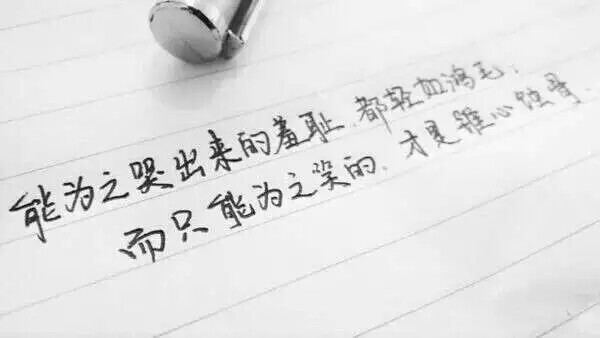 能为之哭出来的羞耻.都轻如鸿毛;
而只能为之笑的.才是锥心蚀骨.